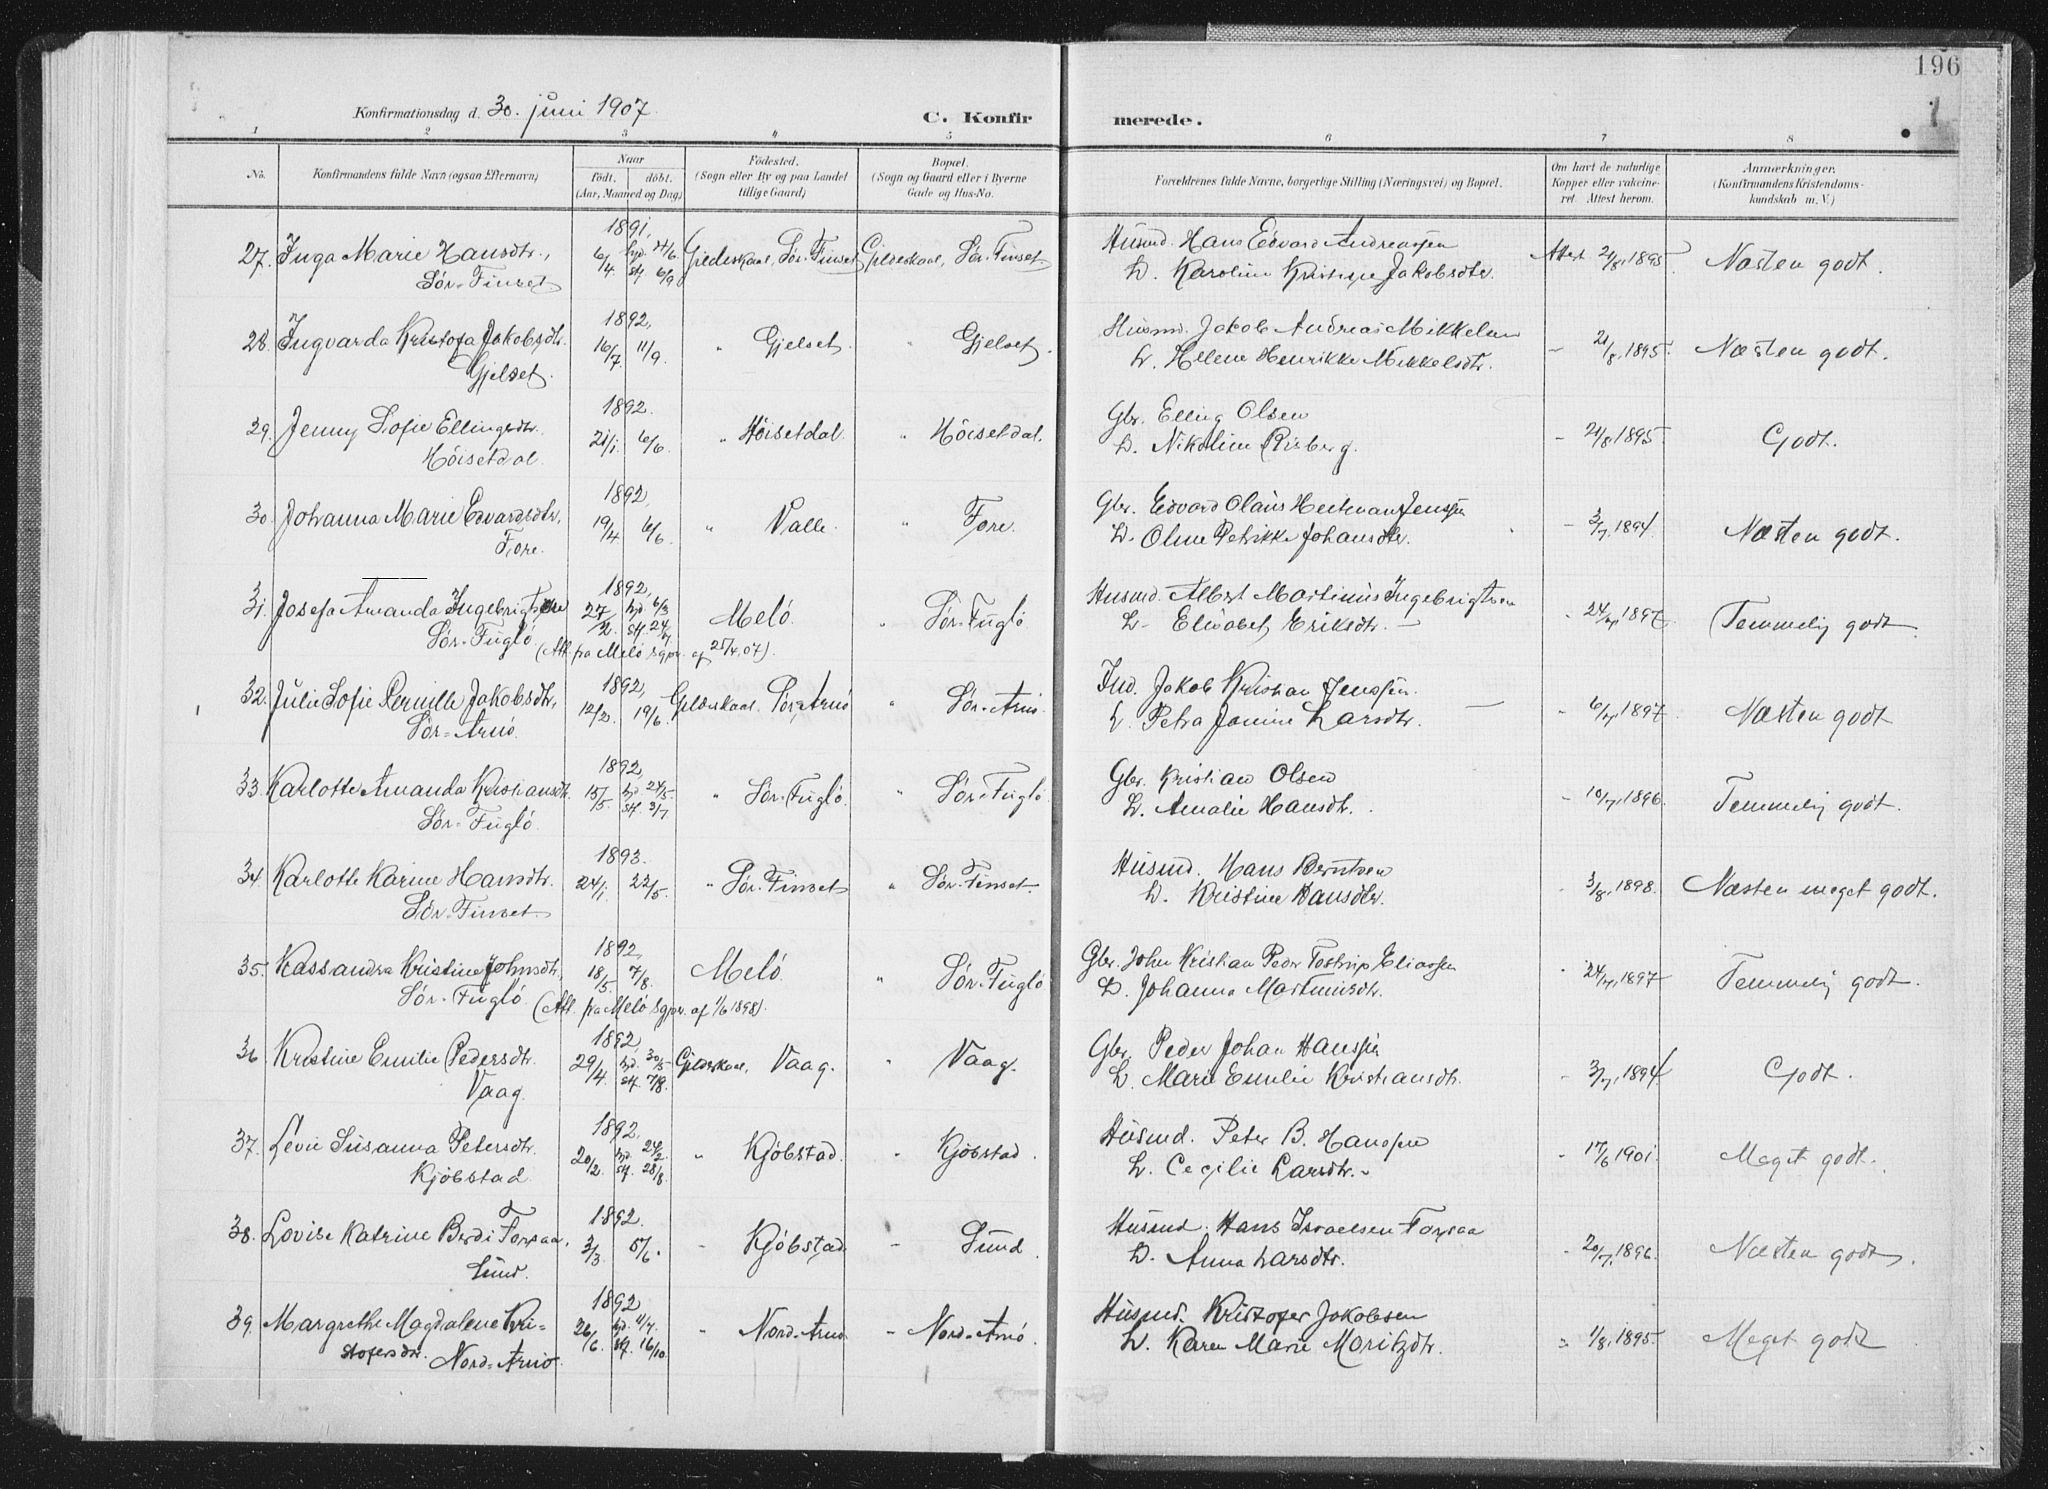 196
Konfirmationsdag d. 30. juni 1907.
C. Konfirmerede.
1 2 3 4 5 6 7 8
No.
Konfirmandens fulde Navn (ogsaa Efternavn)
Naar
født. døbt.
(Aar, Maaned og Dag)
Fødested.
(Sogn eller By og paa Landet
tillige Gaard)
Bopæl.
(Sogn og Gaard eller i Byerne
Gade og Hus-No.
Forældrenes fulde Navne, borgerlige Stilling (Næringsvei) og Bopæl.
Om havt de naturlige
Kopper eller vakcine-
ret. Attest herom.
Anmærkninger.
(Konfirmandens Kristendoms-
kundskab m. V.)
27. Inga Marie Hansdtr.,
Sör-Finset
1891,
6/4. hjd. 24/6. st. 6/9.
Gjildeskaal, Sör-Finset
Gjildeskaal, Sör-Finset
Husmd. Hans Edvard Andreassen
H. Karoline Kristine Jakobsdtr.
Attest 21/8.1895.
Næsten godt.
28. Ingvarda Kristofa Jakobsdtr.
Gjelset.
1892,
16/7. 11/9.
" Gjelset.
" Gjelset.
Husmd. Jakob Andreas Mikkelsen
H. Helene Henrikke Mikkelsdtr.
- 21/8.1895.
Næsten godt.
29. Jenny Sofie Ellingsdtr.
Höisetdal.
1892.
21/1. 6/6.
" Höisetdal.
" Höisetdal.
Gbr. Elling Olsen
H. Nikoline Risberg.
- 21/8.1895.
Godt.
30. Johanna Marie Edvardsdtr.
Fore.
1892,
19/4 6/6.
" Valle.
" Fore.
Gbr. Edvard Olaus Hartman Jenssen
H. Oline Petrikke Johansdtr.
- 3/7.1894.
Næsten godt.
31. Josefa Amanda
Sör-Fuglö
1892,
27/2. hjd. 6/3 st. 24/7
Melö.
" Sör-Fuglö
(Att. fra Melö sgpr. af 25/4.07).
Husmd. Albert Martinus Ingebrigtsen
H. Elisabet Eriksdtr.
- 24/7.1897.
Temmelig godt.
32. Julie Sofie Pernille Jakobsdtr,
Sör-Arnö.
1892,
12/2. 19/6.
Gjildeskaal, Sör-Arnö
" Sör-Arnö.
Ind. Jakob Kristian Jenssen.
H. Petra Janine Larsdtr.
- 6/7.1897.
Næsten godt
33. Karlotte Amanda Kristiansdtr.
Sör-Fuglö.
1892,
15/5. hjd. 24/5. st. 3/7.
" Sör-Fuglö.
" Sör-Fuglö.
Gbr. Kristian Olsen
H. Amalie Hansdtr.
- 10/7.1896.
Temmelig godt.
34. Karlotte Karine Hansdtr.
Sör-Finset
1893.
24/1. 22/5.
" Sör-Finset
" Sör-Finset.
Husmd. Hans Berntsen
H. Kristine Hansdtr.
- 3/8.1898.
Næsten meget godt.
35. Kassandra Kristine Johnsdtr.
Sör-Fuglö.
1892,
18/5. 7/8.
Melö
" Sör-Fuglö
(Att. fra Melö sgpr. af 1/6 1898).
Gbr. John Kristian Peder Tostrup Eliassen
H. Johanna Martinusdtr.
- 24/7.1897
Temmelig godt.
36 Kristine Emilie Pedersdtr.
Vaag.
1892
29/4. hjd. 30/5 st. 7/8.
Gjildeskaal, Vaag.
" Vaag.
Gbr. Peder Johan Hanssen
H. Marie Emilie Kristiansdtr.
- 3/7.1894.
Godt.
37. Levie Susanna Petersdtr.
Kjöbstad.
1892,
20/2. hjd. 24/2. st. 28/8.
" Kjöbstad.
" Kjöbstad.
Husmd. Peter B. Hanssen
H. Cecilie Larsdtr.
- 17/6 1901.
Meget godt.
38. Lovise Katrine Berdi Forsaa.
Sund.
1892.
3/3. 5/6.
" Kjöbstad
- Sund.
Husmd. Hans Israelsen Forsaa
H. Anna Larsdtr.
- 20/7.1896.
Næsten godt.
39. Margrethe Magdalene Kri-
stofersdtr. Nord-Arnö.
1892
26/6. hjd. 11/7. st. 16/10.
" Nord-Arnö
- Nord-Arnö.
Husmd. Kristofer Jakobsen
H. Karen Marie Moritzdtr.
- 1/8.1895.
Meget godt